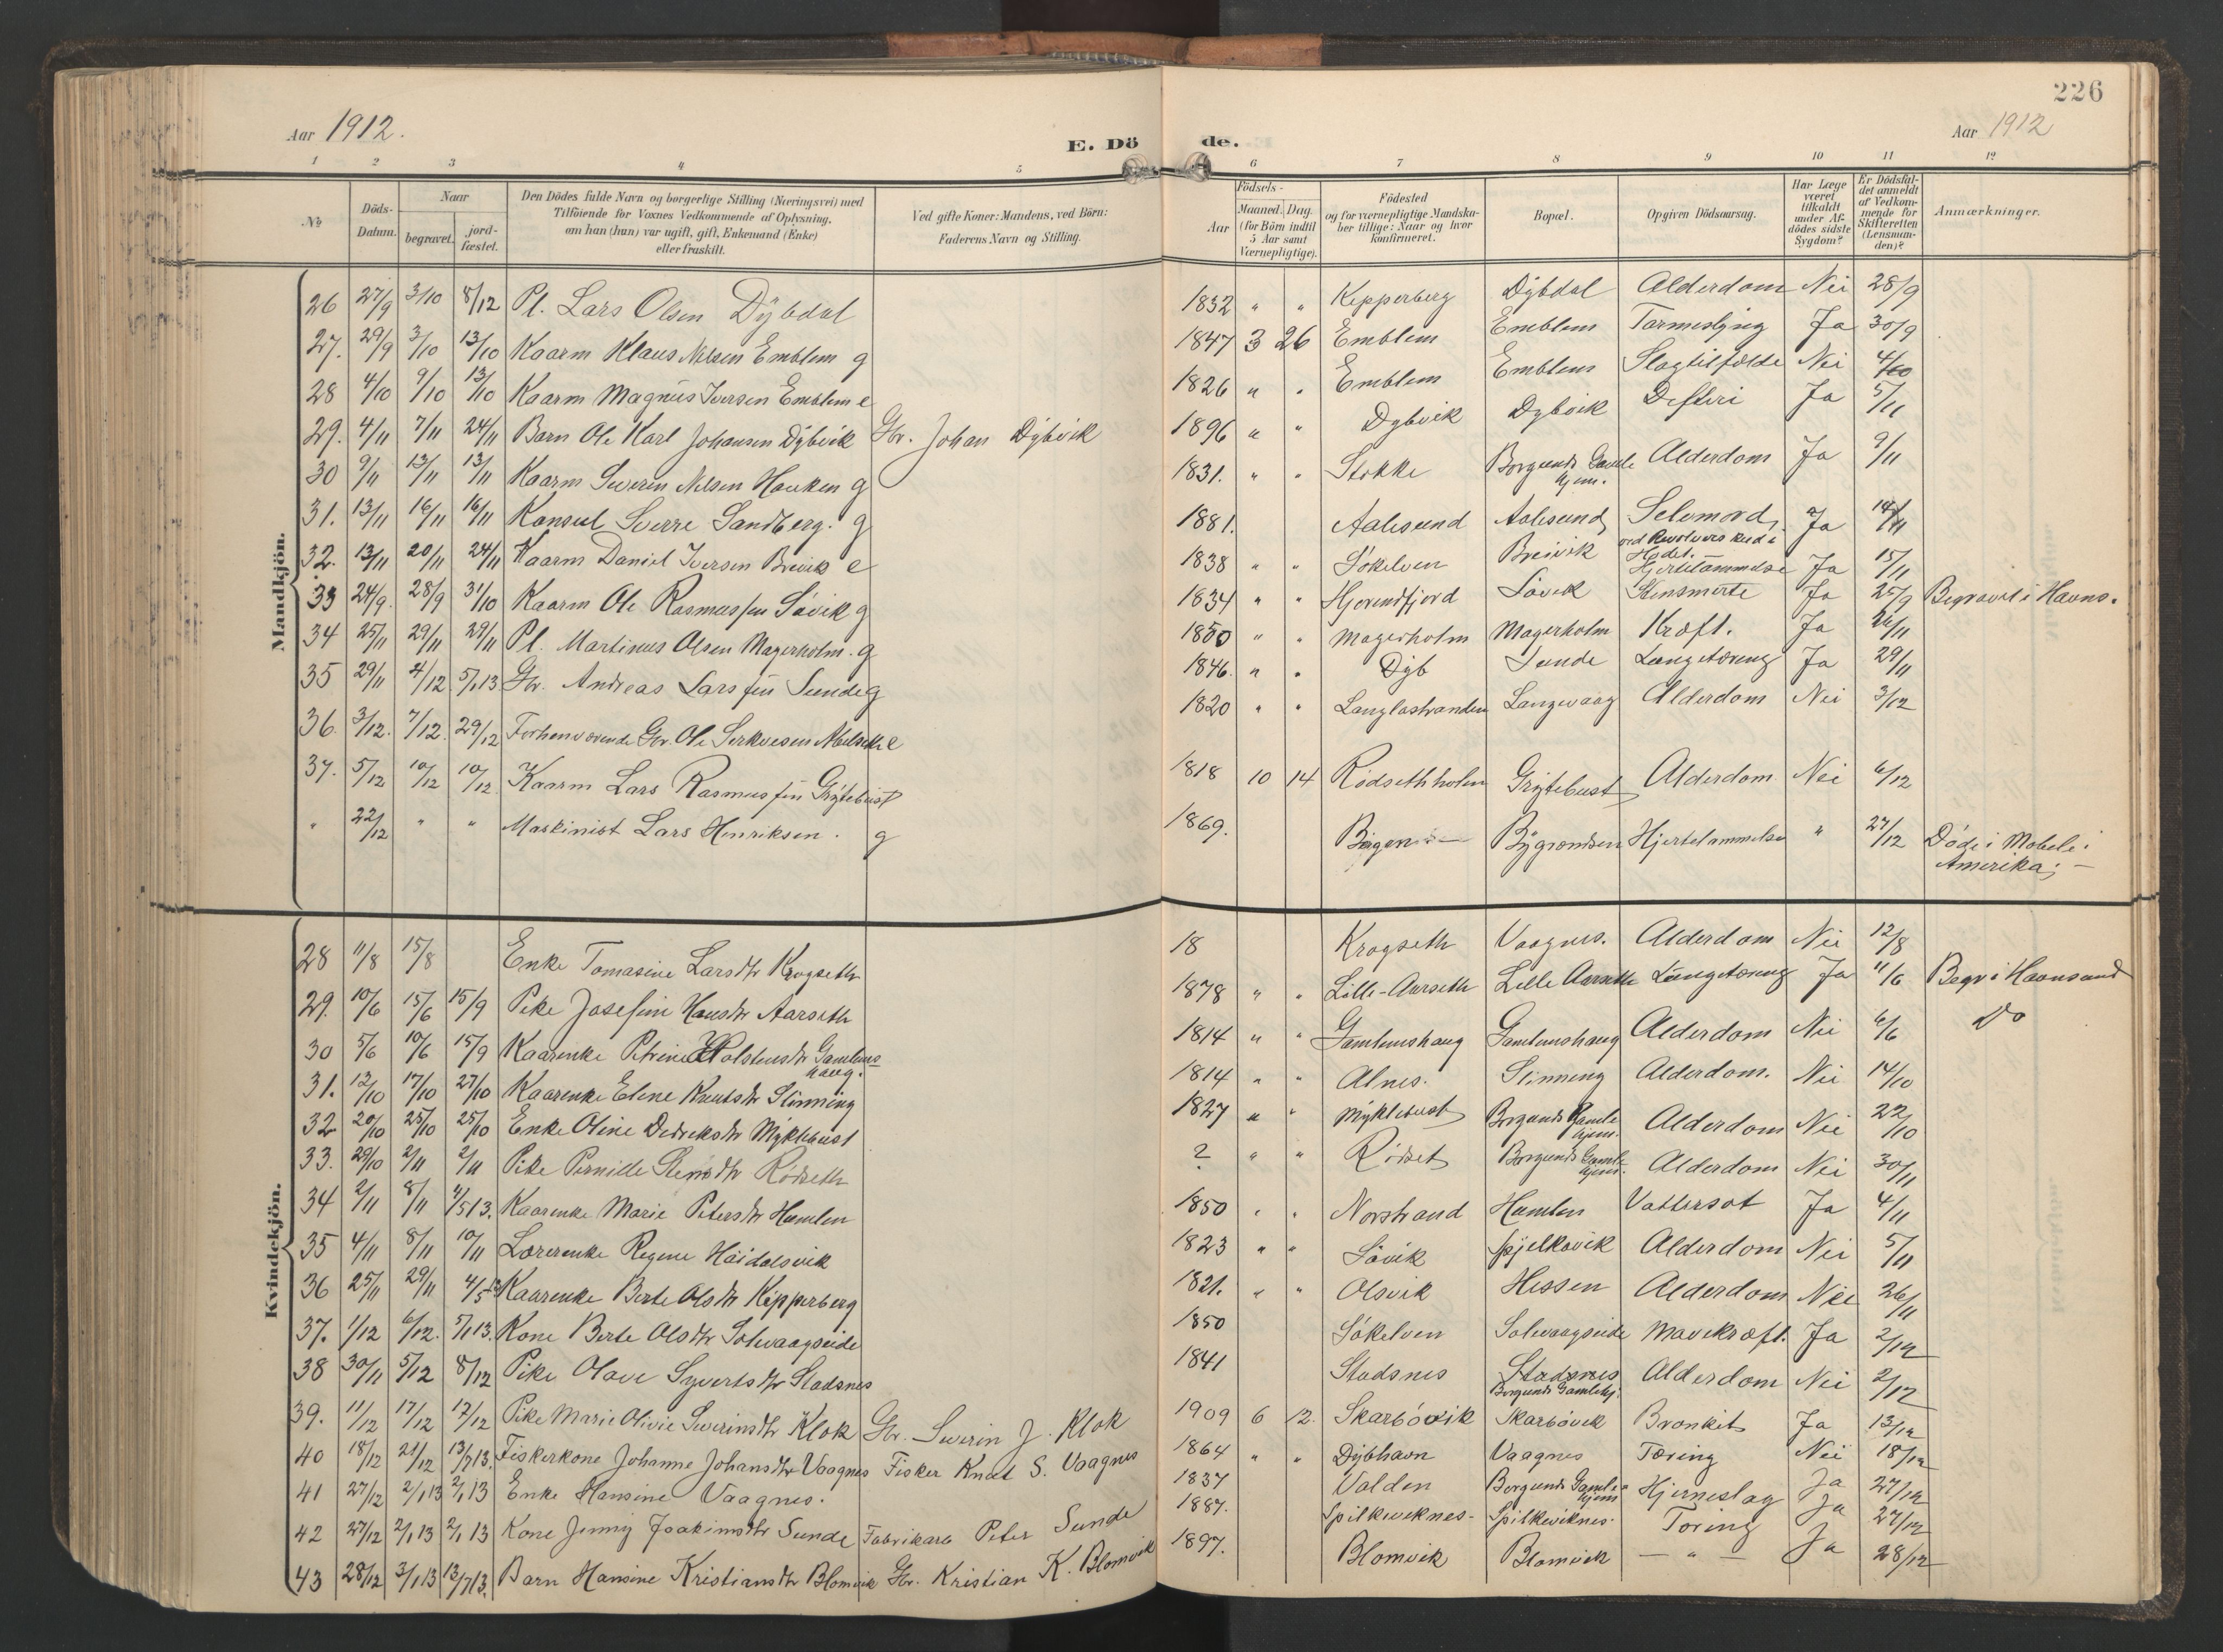 226
Aar 1912.
E. Dö de.
Aar 1912
1 2 3 4 5 6 7 8 9 10 11 12
№
Döds-Datum.
Naar
begravet.
jord-fæstet.
Den Dödes fulde Navn og borgerlige Stilling (Næringsvei) med
Tilföiende for Voxnes Vedkommende af Oplysning,
om han (hun) var ugift, gift, Enkemand (Enke)
eller fraskilt.
Ved gifte Koner: Mandens, ved Börn:
Faderens Navn og Stilling.
Födsels-
Aar
Maaned. Dag.
(for Börn indtil
5 Aar samt
Værnepligtige).
Födested
og for værnepligtige Mandska-
ber tillige: Naar og hvor
konfirmeret.
Bopæl.
Opgiven Dödsaarsag.
Har Læge
været
tilkaldt
under Af-
dödes sidste
Sygdom?
Er Dödsfal-
det anmeldt
af Vedkom-
mende for
Skifteretten
(Lensman-
den)?
Anmærkninger.
Mandkjön.
26 27/9 3/10 8/12 Pl. Lars Olsen Dybdal 1832 " " Kepperberg Dybdal Alderdom Nei 28/9
27. 29/9 3/10 13/10 Kaarm Klaus Nilsen Emblem g 1847 3 26 Emblem Emblem Tarmeslyng Ja 30/9
28 4/10 9/10 13/10 Kaarm Magnus Iversen Emblem e 1826 " " Emblem Emblem Slagtilfælde Nei 4/10
29. 4/11 7/11 24/11 Barn Ole Karl Johansen Dybvik Gbr. Johan Dybvik 1896 " " Dybvik Dybvik Defteri Ja 5/11
30 9/11 13/11 13/11 Kaarm Severin Nilsen Hauken g 1831. " " Stokke Borgunds Gamlehjem. Alderdom Ja 9/11
31. 13/11 16/11 16/11 Konsul Sverre Sandberg. g 1881. Aalesund Aalesund Selvmord ved Revolverskud i Hodet. Ja 14/11
32. 13/11 20/11 24/11 Kaarm Daniel Iversen Breivik e 1838 " " Sökelven Breivik Hjertelammelse Ja 15/11
33 24/9. 28/9 31/10 Kaarm Ole Rasmussen Sövik g 1834 " " Hjörendfjord Sövik Ja 25/9 Begravet i Havns.
34 25/11 29/11 29/11 Pl. Martinus Olsen Magerholm. g 1850 " " Magerholm Magerholm Kræft. Ja 26/11
35 29/11 4/12 5/1 13 Gbr. Andreas Larssen Sunde g 1846. " " Dyb Sunde Lungetæring Ja 29/11
36 3/12. 7/12. 29/12 Forhenværende Gbr. Ole e 1820 " " Langlostranden Langevaag Alderdom Nei 3/12
37. 5/12 10/12 10/12 Kaarm Lars Rasmussen Grytebust 1818 10 14 Rödsethholm Grytebust Alderdom Nei 6/12
" 22/12 " " Maskinist Lars Henriksen. g 1869. Bergen Hjertelammelse " 27/12 Döde i Mobele i
Amerika; —
Kvindekjön.
28 11/8 15/8 Enke Tomasine Larsdtr Krogseth 18 Krogseth Vaagnes. Alderdom Nei 12/8
29. 10/6 15/6 15/9 Pike Josefine Hansdtr Aarseth 1878 " " Lille-Aarseth Lille Aarseth Lungetæring Ja 11/6 Begr i Havnsund
30 5/6 10/6 15/9 Kaarenke Petrine Holstensdtr Gamlemshaug. 1814 " " Gamlemshaug Gamlemshaug Alderdom Nei 6/6 Do
31. 12/10 17/10 27/10 Kaarenke Elene Knutsdtr Slinning 1814 " " Alnes. Slinning Alderdom. Nei 14/10
32 20/10 25/10 25/10 Enke Oline Didriksdtr Myklebust 1827 " " Myklebust Borgunds Gamlehjem. Alderdom Nei 22/10
33. 29/10 2/11 2/11 Pike Pernille Stensdtr Rödseth ? " " Rödset Borgunds Gamlehjem. Alderdom Nei 30/11
34 2/11 8/11 4/5 13. Kaarenke Marie Petersdtr Humlen 1850 " " Norstrand Humlen Vattersot Ja 4/11
35 4/11 8/11 10/11 Lærerenke Regine Heidalsvik 1823 " " Sövik Spjelkavik Alderdom Nei 5/11
36 25/11 29/11 4/5 13 Kaarenke Berte Olsdtr Kipperberg 1821. " " Olsvik Hessen Alderdom Nei 26/11
37. 1/12 6/12. 5/1 13. Kone Berte Olsdtr Solevaagseide 1850 Sökelven Solevaagseide Mavekræft. Ja 2/12
38 30/11 5/12 8/12 Pike Olave Syvertsdtr Stadsnes 1841 Stadsnes Stadsnes Borgunds Gamlehj. Alderdom Nei 2/12
39. 11/12 17/12 17/12 Pike Marie Olivie Severinsdtr Klok Gbr. Severin J. Klok 1909 6 12. Skarbövik Skarbövik Bronkit Ja 13/12
40 18/12 21/12 13/7 13. Fiskerkone Johanne Johansdtr Vaagnes Fisker Knut S. Vaagnes 1864 " " Dybhavn Vaagnes Tæring Nei 18/12
41 27/12 2/1 13 2/1 13 Enke Hansine Vaagnes. 1837 Valden Borgunds Gamlehjem Hjerneslag Ja 27/12
42 27/12 2/1 13 2/1 13 Kone Jenny Joakimsdtr Sunde Fabrikarb Peter Sunde 1887. Spilkeviknes- Spilkeviknes. Tæring Ja 27/12
43 28/12 3/1 13 13/7 13. Barn Hansine Kristiansdtr Blomvik Gbr. Kristian K. Blomvik 1897. Blomvik Blomvik — " — Ja 28/12